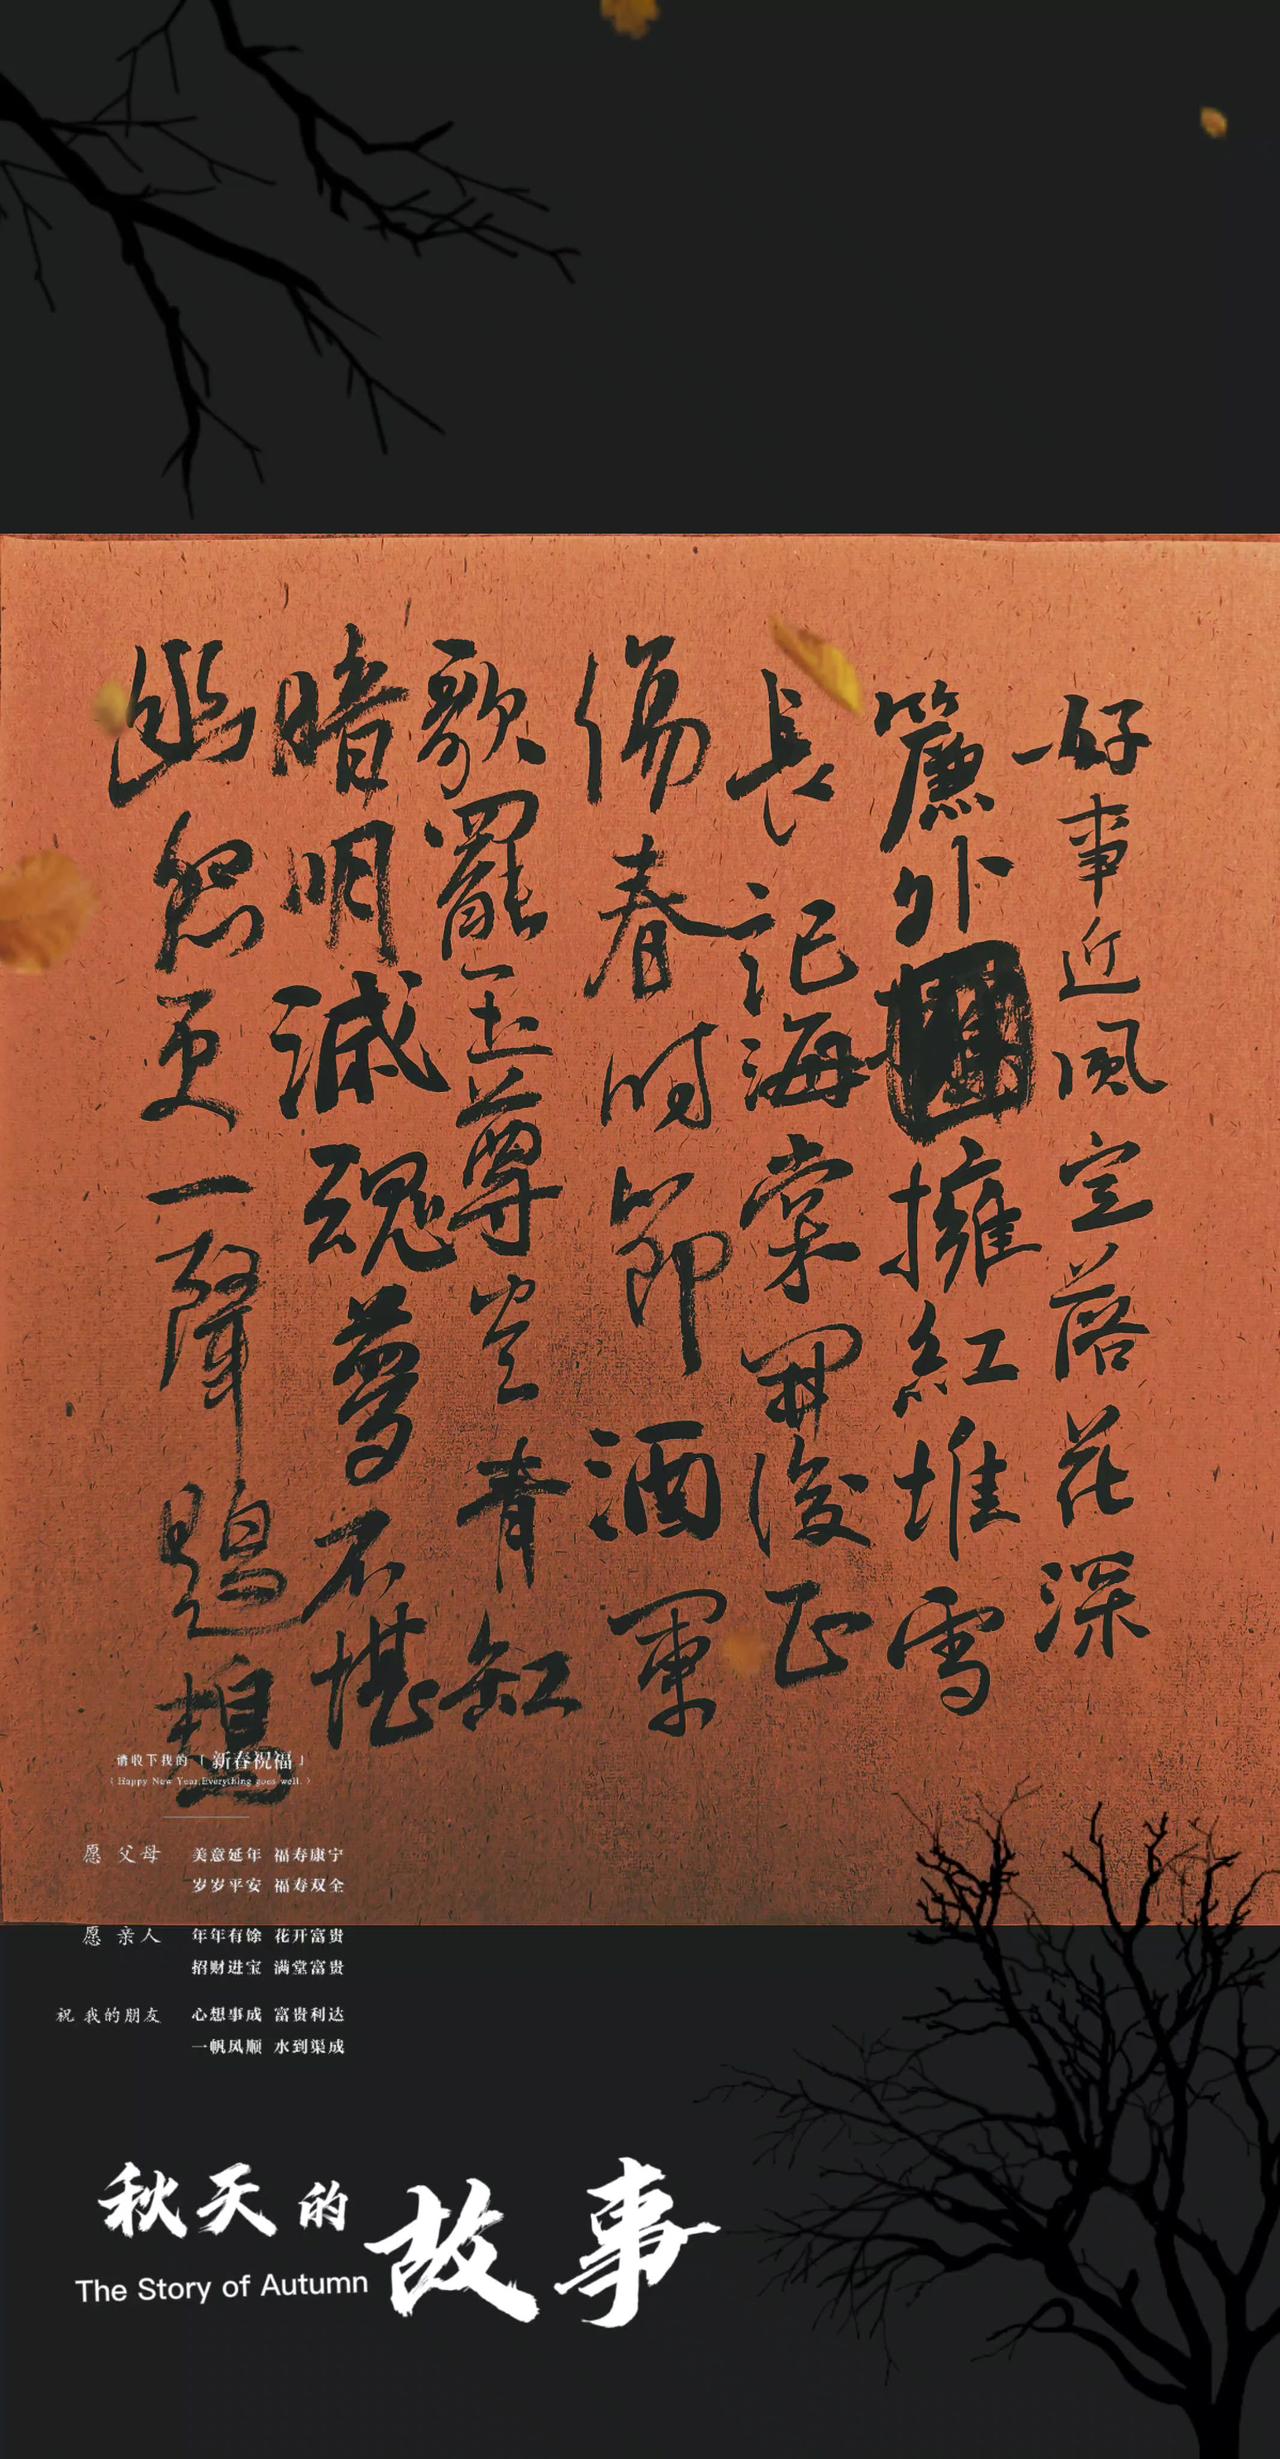 好事近風定落花深
簾外擁紅堆雪
長記海棠開後正
傷春時節酒闌
歌罷玉尊空青缸
暗明滅魂夢不堪
幽怨更一聲題鴂
请收下我的「新春祝福」
(Happy New Year,Everything goes well.)
愿 父母 美意延年 福寿康宁
岁岁平安 福寿双全
愿 亲人 年年有馀 花开富贵
招财进宝 满堂富贵
祝 我的朋友 心想事成 富贵利达
一帆风顺 水到渠成
秋天的故事
The Story of Autumn